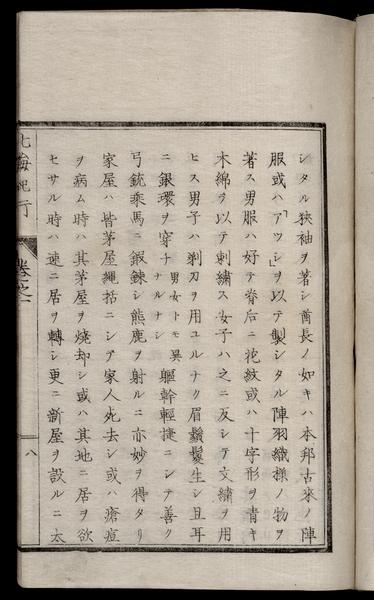 シタル狹袖ヲ著シ酋長ノ如キハ本邦古來ノ陣
服或ハ「アツシ」ヲ以テ製シタル陣羽織樣ノ物ヲ
著ス男服ハ好テ脊后ニ花紋或ハ十字形ヲ青キ
木綿ヲ以テ刺繍ス女子ハ之ニ反シテ文繍ヲ用
ヒス男子ハ剃刀ヲ用ユルナク眉鬚髮生シ且耳
ニ銀環ヲ穿チ男女トモ異ナルナシ軀幹輕捷ニシテ善ク
弓銃乘馬ニ鍛鍊シ熊鹿ヲ射ルニ亦妙ヲ得タリ
家屋ハ皆茅屋繩括ニシテ家人死去シ或ハ瘡痘
ヲ病ム時ハ其茅屋ヲ燒却シ或ハ其地ニ居ヲ欲
セサル時ハ速ニ居ヲ轉シ更ニ新屋ヲ設ルニ太
北海紀行 卷之一 八